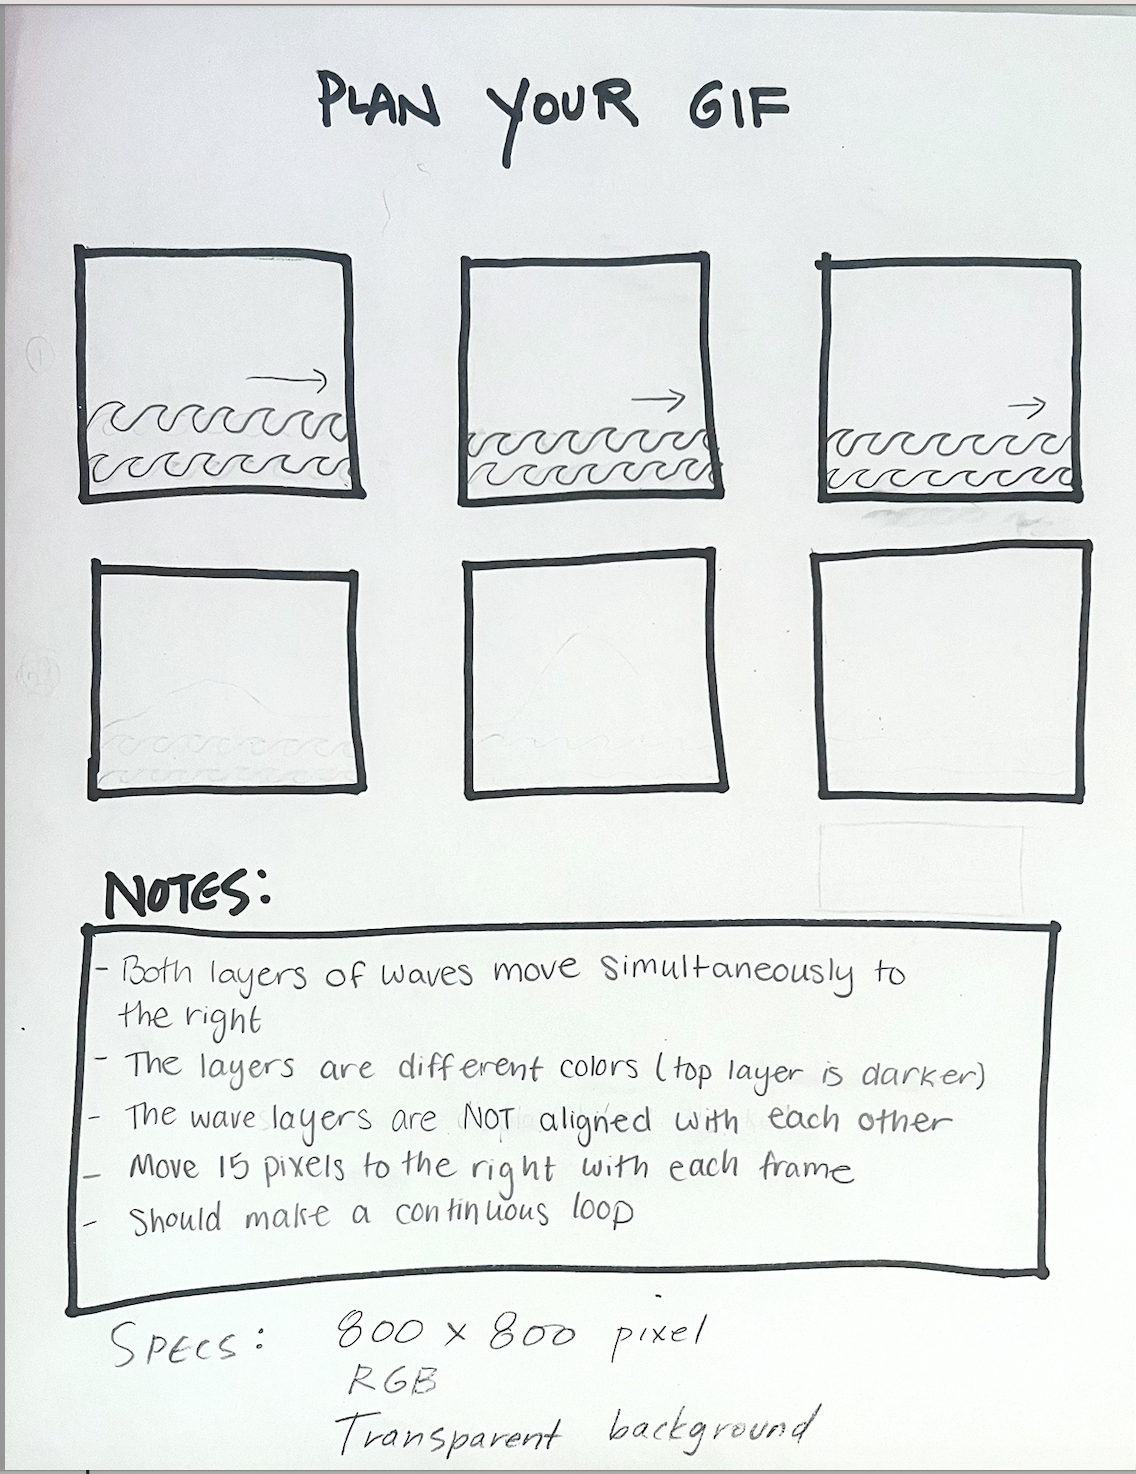 PLAN YOUR GIF
NOTES:
- Both layers of waves move simultaneously to
the right
- The layers are different colors (top layer is darker)
- The wave layers are NOT aligned with each other
- Move 15 pixels to the right with each frame
- Should make a continuous loop
SPECS: 800 x 800 pixel
RGB
Transparent background